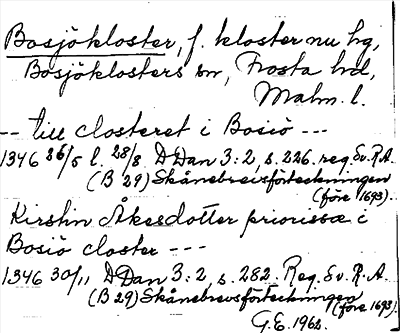 Bosjökloster, f. kloster nu hg,
Bosjöklosters sn, Frosta hd,
Malm. l.
-- till closteret i Bosiö ---
1346 26/5 l. 28/8 DDan 3:2, s. 226. reg. Sv.R.A.
(B 29) Skånebrevsförteckningen
(före 1693).
Kirstin Åkesdotter priorissæ i
Bosiö closter ---
1346 30/11 DDan 3:2, s. 282. Reg. Sv. R.A.
(B 29) Skånebrevsförteckningen
(före 1693).
G.E. 1962.